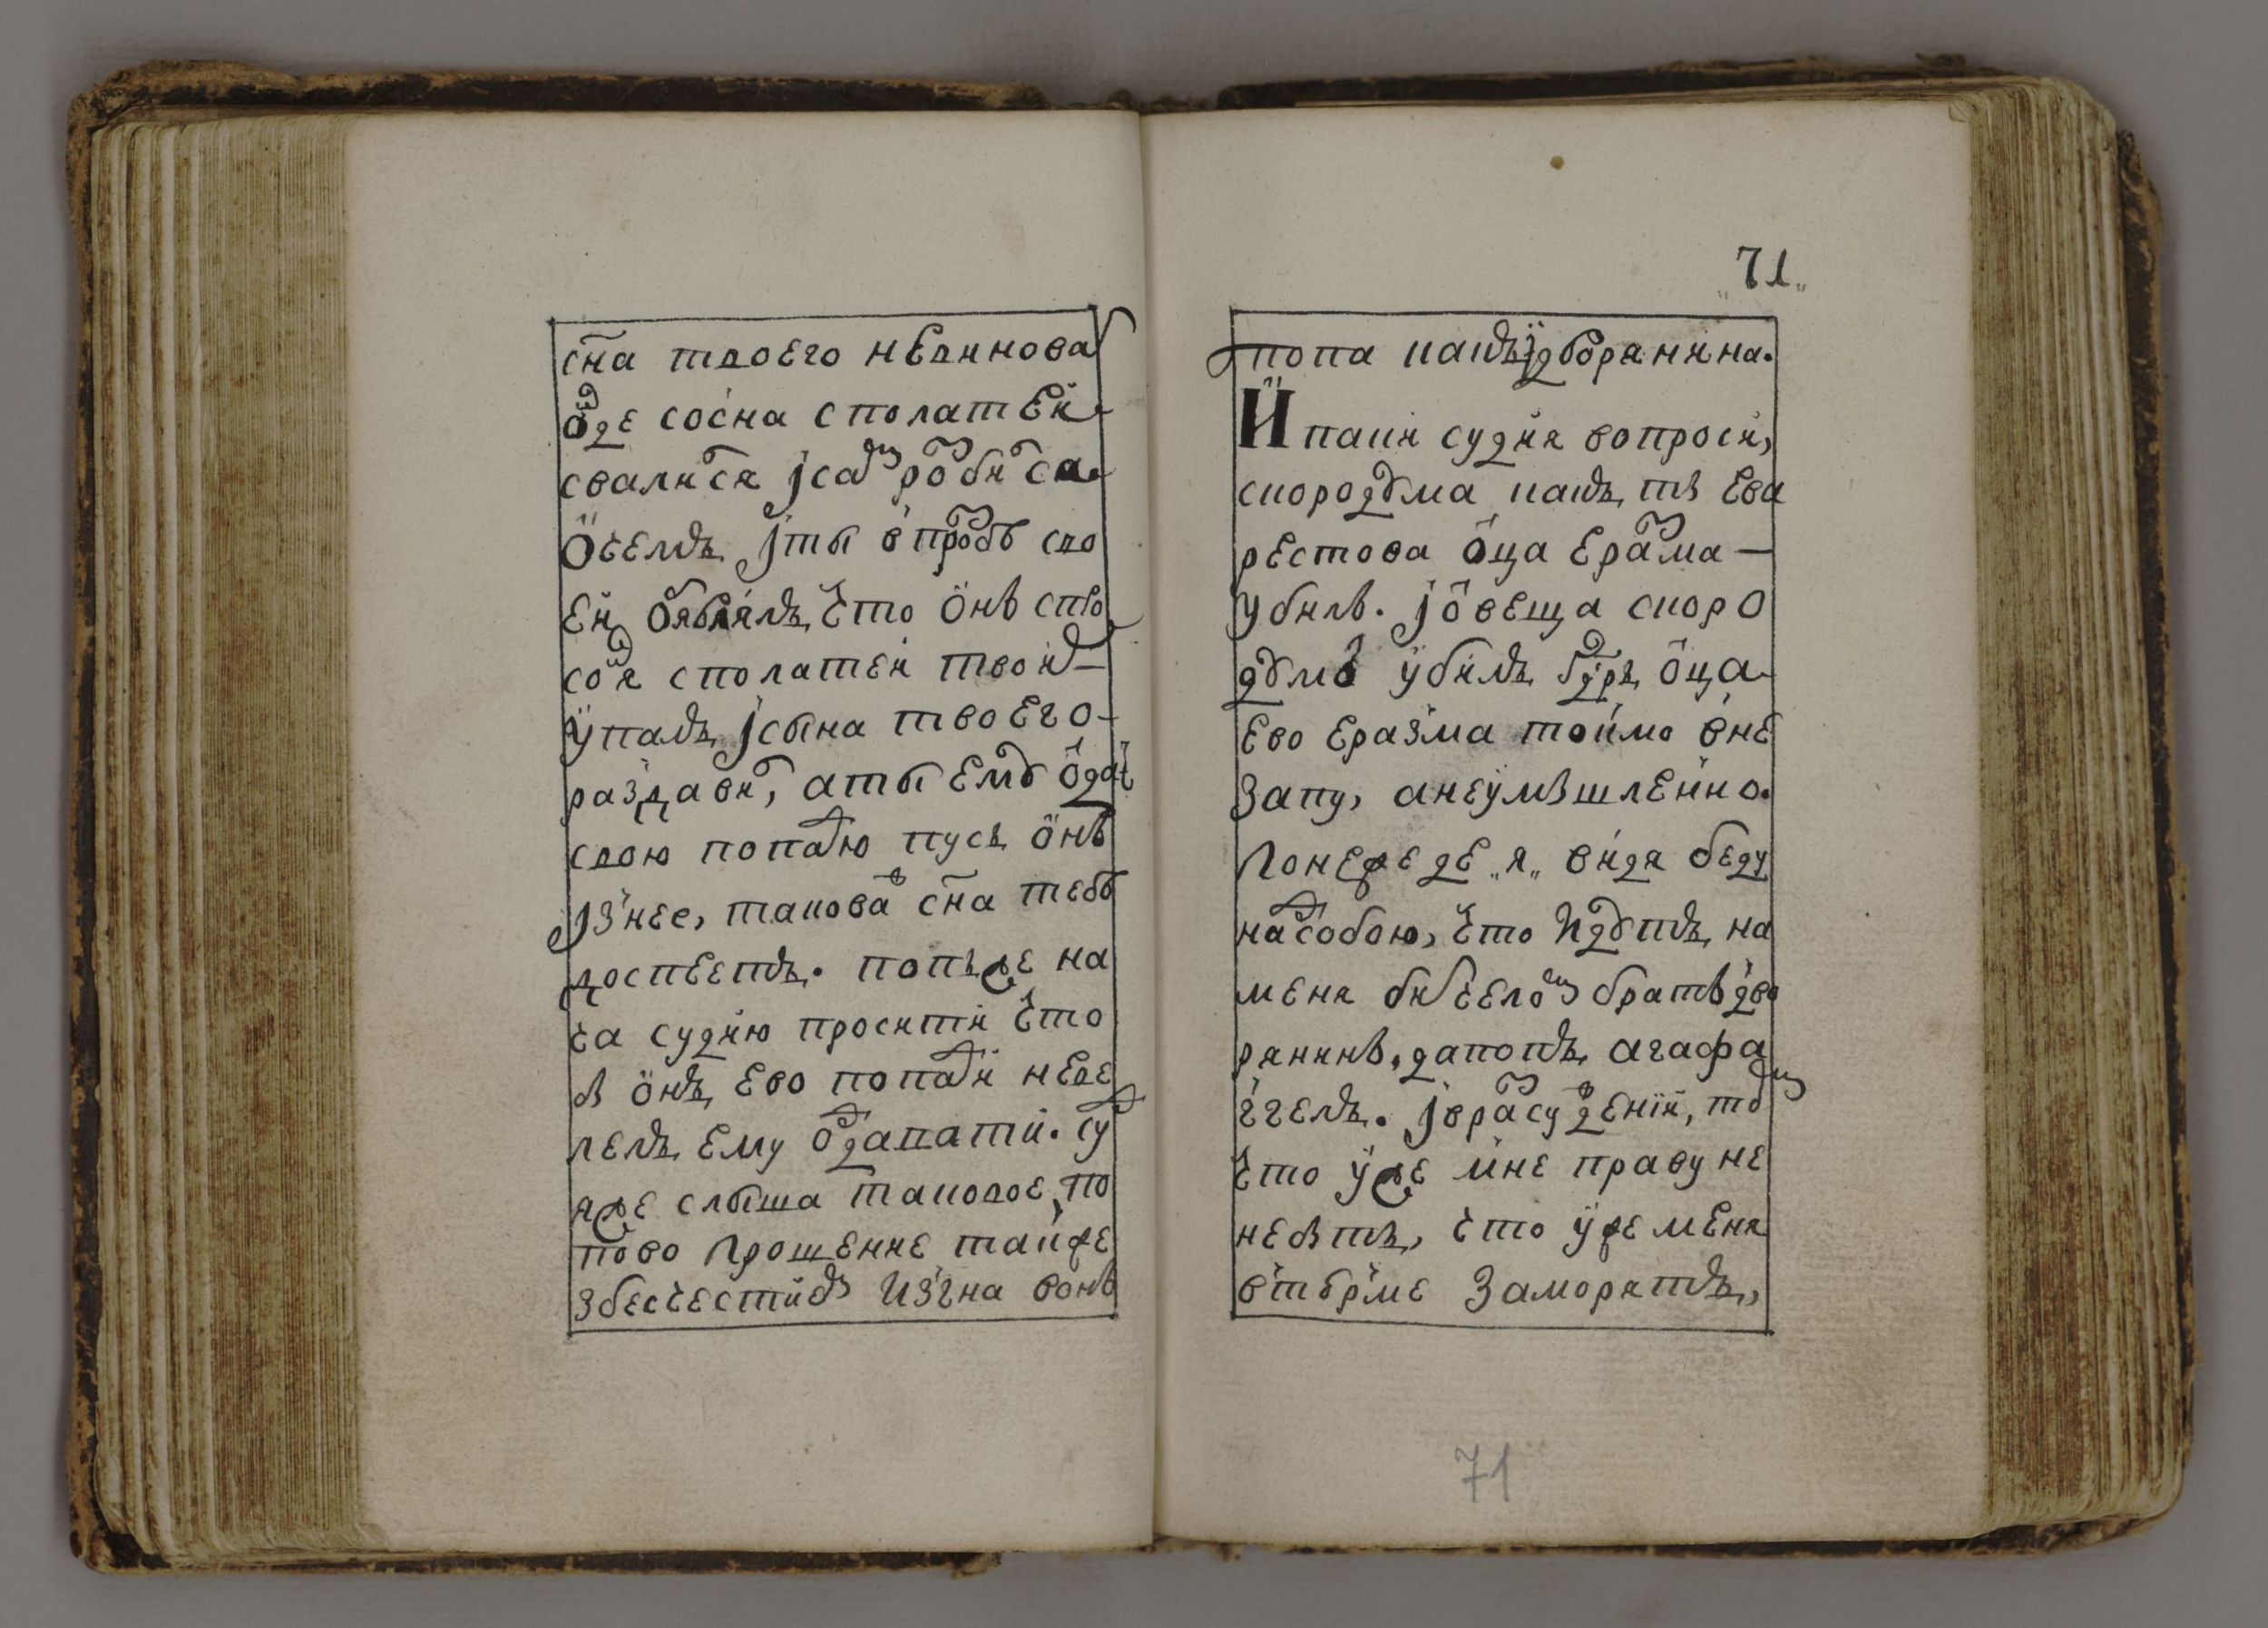 сн҃а твоего невиннова
ѿиде сосна с полатей
свалися ј самъ розбился.
Ѿселѣ ј ты в прозбѣ сво
ей обявлялъ, что онъ спѣ
сойдя с полатей твоихъ
упалъ ј сына твоего
раздавил, а ты ему ѿдай
свою попадю пусть онъ
јз нее, таковаж сн҃а тебѣ
доспеетъ. попъ же на
ча судию просити что
б онъ ево попадьи не ве
лелъ ему ѿдавати. суд
я же слыша таковое, по
пово прошение такоже
з бесчестиемъ изгна вонъ
71
попа какъ ј дворянина.
И паки судия вопроси,
скородума какъ, ты Ева
рестова ѿца Еразма
убилъ. ј ѿвеща скоро
думъ убилъ гдⷭ҇рь ѿца
ево Еразма токмо вне
запу, а не умышленно.
Понеже де я видя беду
над собою, что идутъ на
меня бит челомъ братъ дво
рянинъ, да попъ, агафа
ггелъ. ј в разсуждении, том
что уже мне праву не
не быть, что уже меня
в тюрме заморятъ,
71